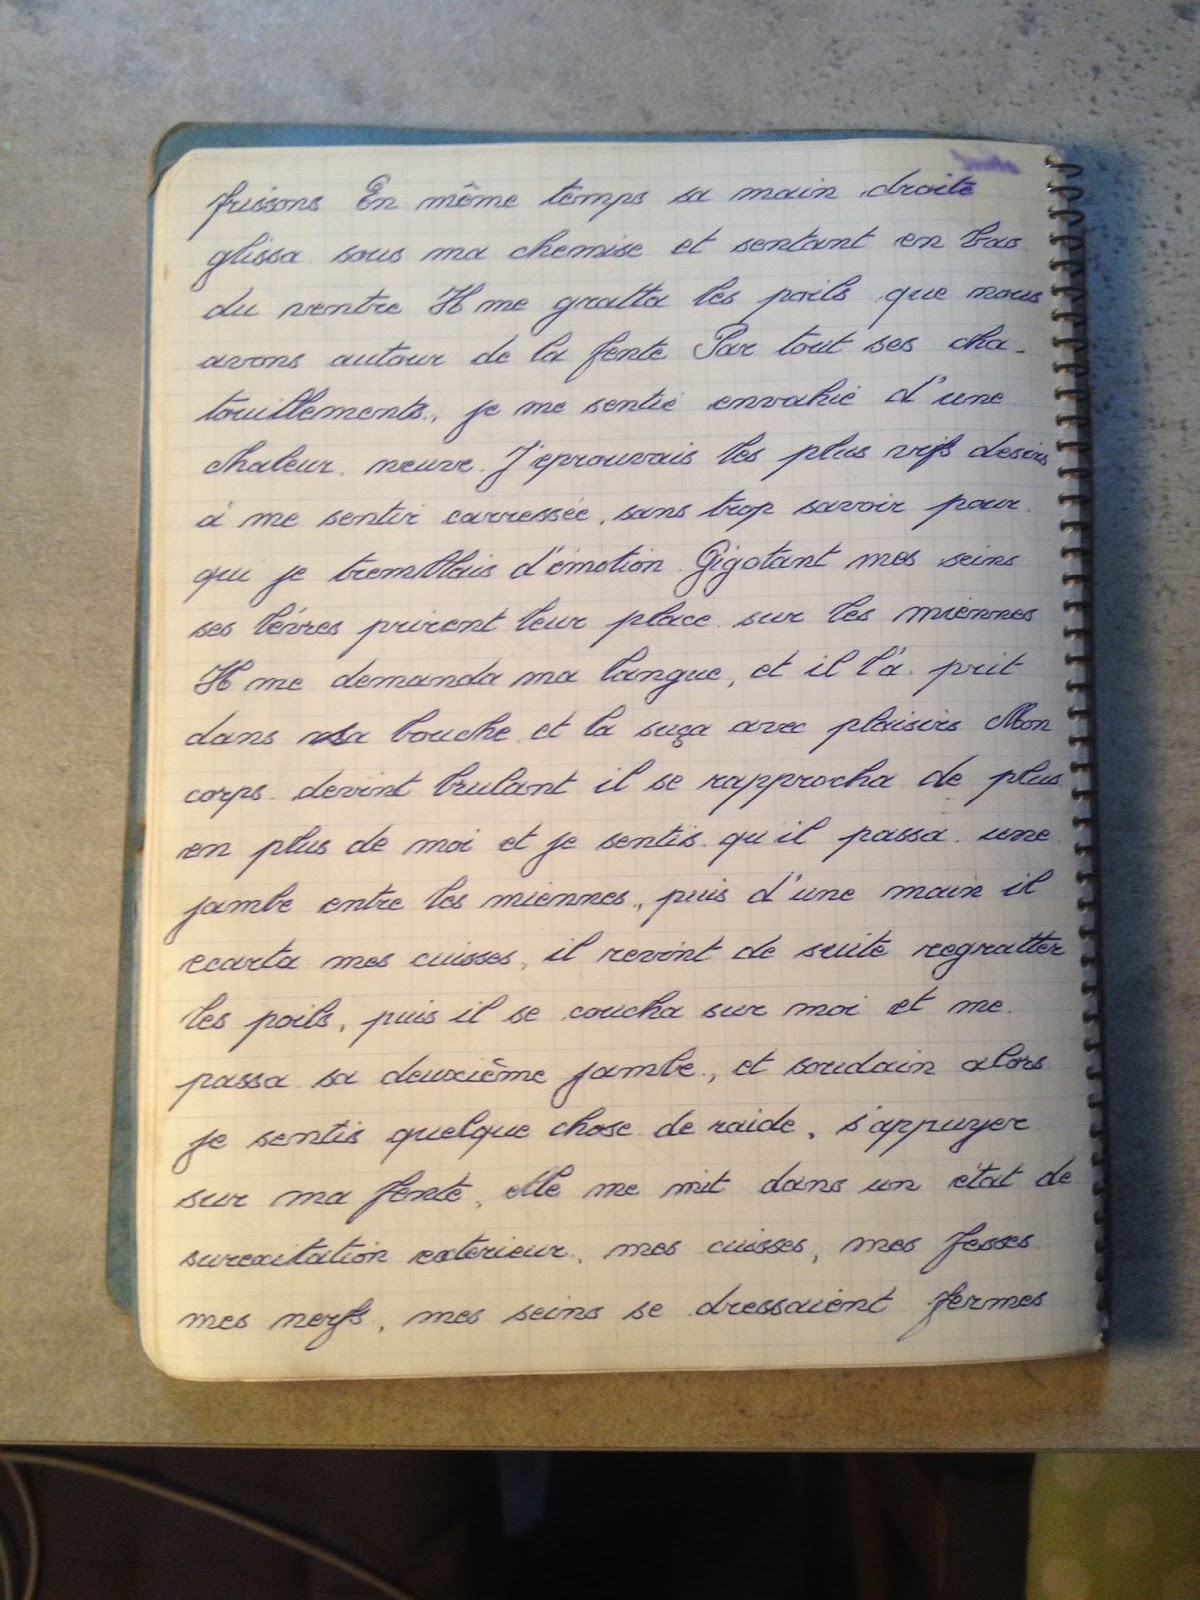 frissons En même temps sa main droite
glissa sous ma chemise et sentant en bas
du ventre Il me gratta les poils que nous
avons autour de la fente Par tout ses cha-
touillements, je me sentie envahie d'une
chaleur neuve. J'eprouvais les plus vifs desirs
à me sentir carressée, sans trop savoir pour
qui je tremblais d'émotion. Gigotant mes seins
ses lévres prirent leur place sur les miennes
Il me demanda ma langue, et il l'à prit
dans sa bouche et la suça avec plaisirs Mon
corps devint brulant il se rapprocha de plus
en plus de moi et je sentis qu'il passa une
jambe entre les miennes, puis d'une main il
ecarta mes cuisses, il revint de suite regratter
les poils, puis il se coucha sur moi et me
passa sa deuxième jambe, et soudain alors
je sentis quelque chose de raide, s'appuyer
sur ma fente, elle me mit dans un état de
surexitation exterieur, mes cuisses, mes fesses
mes nerfs, mes seins se dressaient fermes